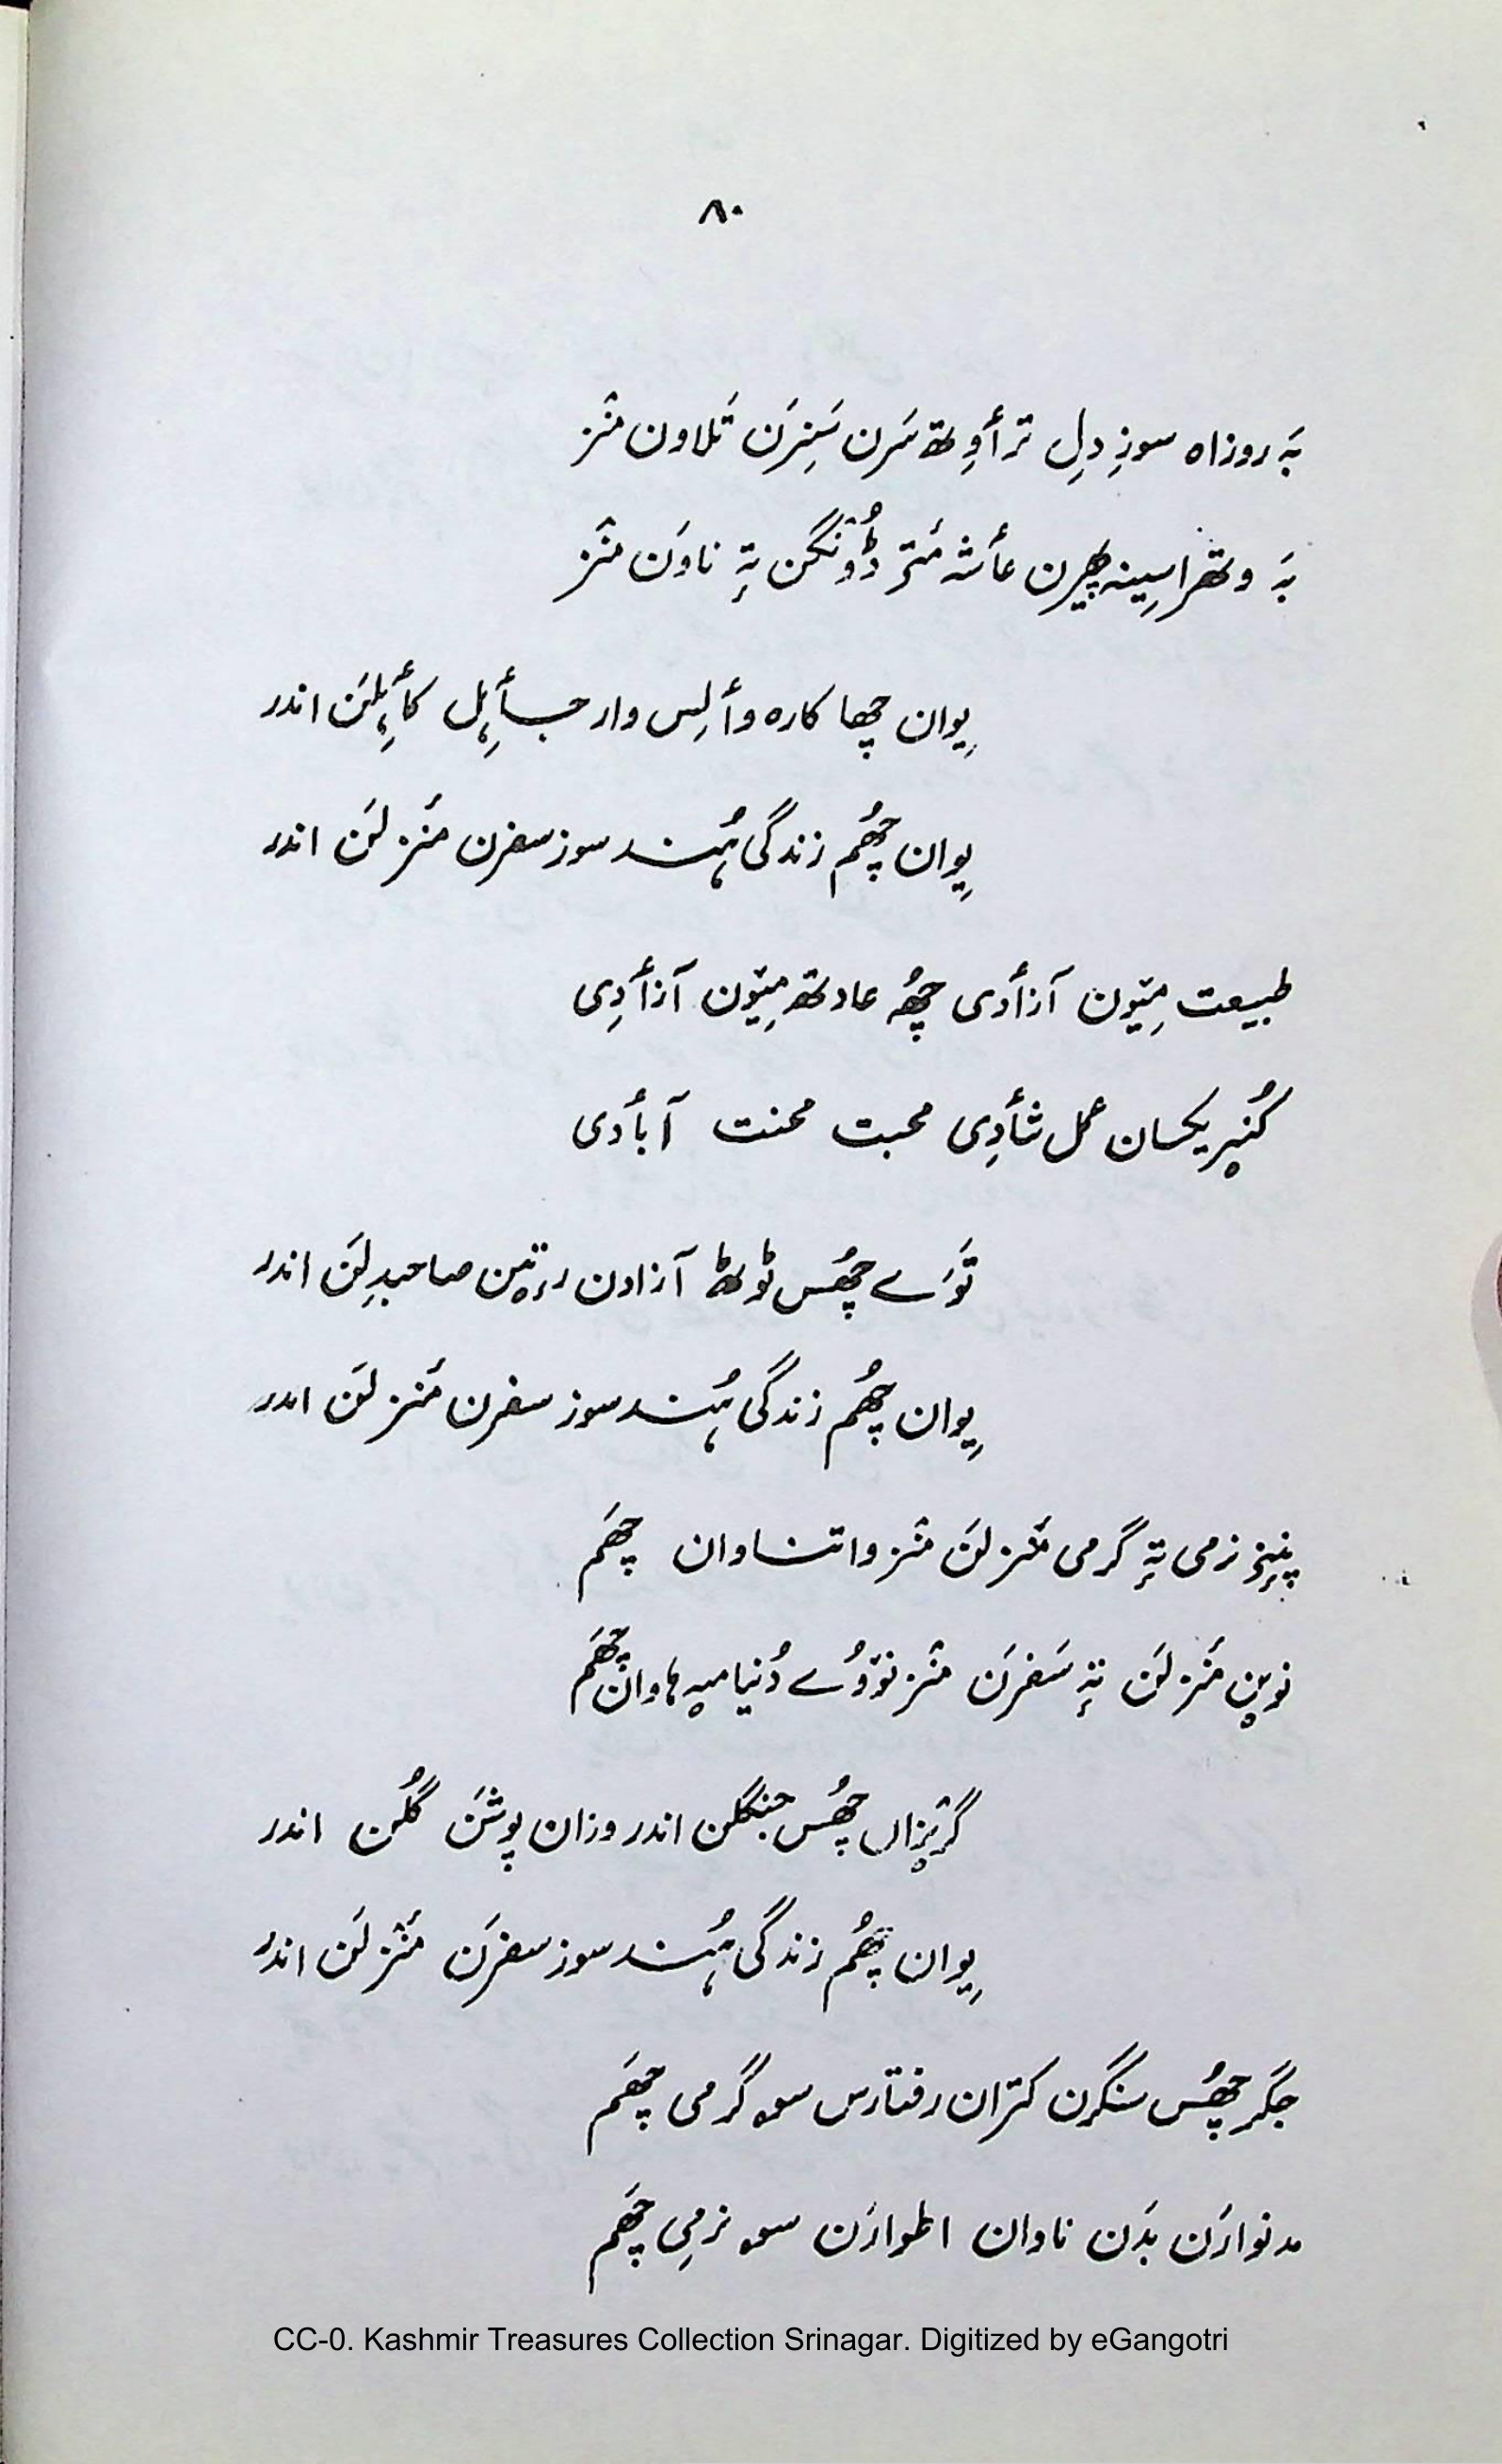 ۸۰
بَہ روزاہ سوزِ دِل ترٲوِتھ سَرن سَنِرَن تَلاون منٛز
بَہ وتھرا سینہٕ چیرن عٲشہ مٔتۍ ڈُونٛگن تہٕ ناوَن منٛز
یِوان چھا کارہ وٲلِس وار حٲیِل کٲیِلَن اندر
یِوان چھُم زندگی ہُنٛد سوز سفرن مَنٛزلَن اندر
طبیعت میٛون آزٲدی چھُہ عادتھ میٛون آزٲدِی
کُنیر یکسان عمل شٲدِی محبت محنت آبٲدی
تَوَے چھُس ٹوٹھ آزادن رٕتیٚن صاحبدِلَن اندر
یِوان چھُم زندگی ہُنٛد سوز سفرن مَنٛزلَن اندر
پننۍ نرمی تہٕ گرمی مَنٛزلَن منٛز واتناوان چھَم
نویٚن مَنٛزلَن تہٕ سَفرَن منٛز نوٚوُے دُنیا میہ ہاوان چھَم
گریزاں چھُس جنگلن اندر وزان پوشَن گُلن اندر
یِوان چھُم زندگی ہُنٛد سوز سفرَن مَنٛزلَن اندر
جگر چھُس سنگرن کتران رفتارس سۄ گرمی چھَم
مدنوارَن بدَن ناوان اطوارَن سۄ نرمِی چھَم
CC-0. Kashmir Treasures Collection Srinagar. Digitized by eGangotri